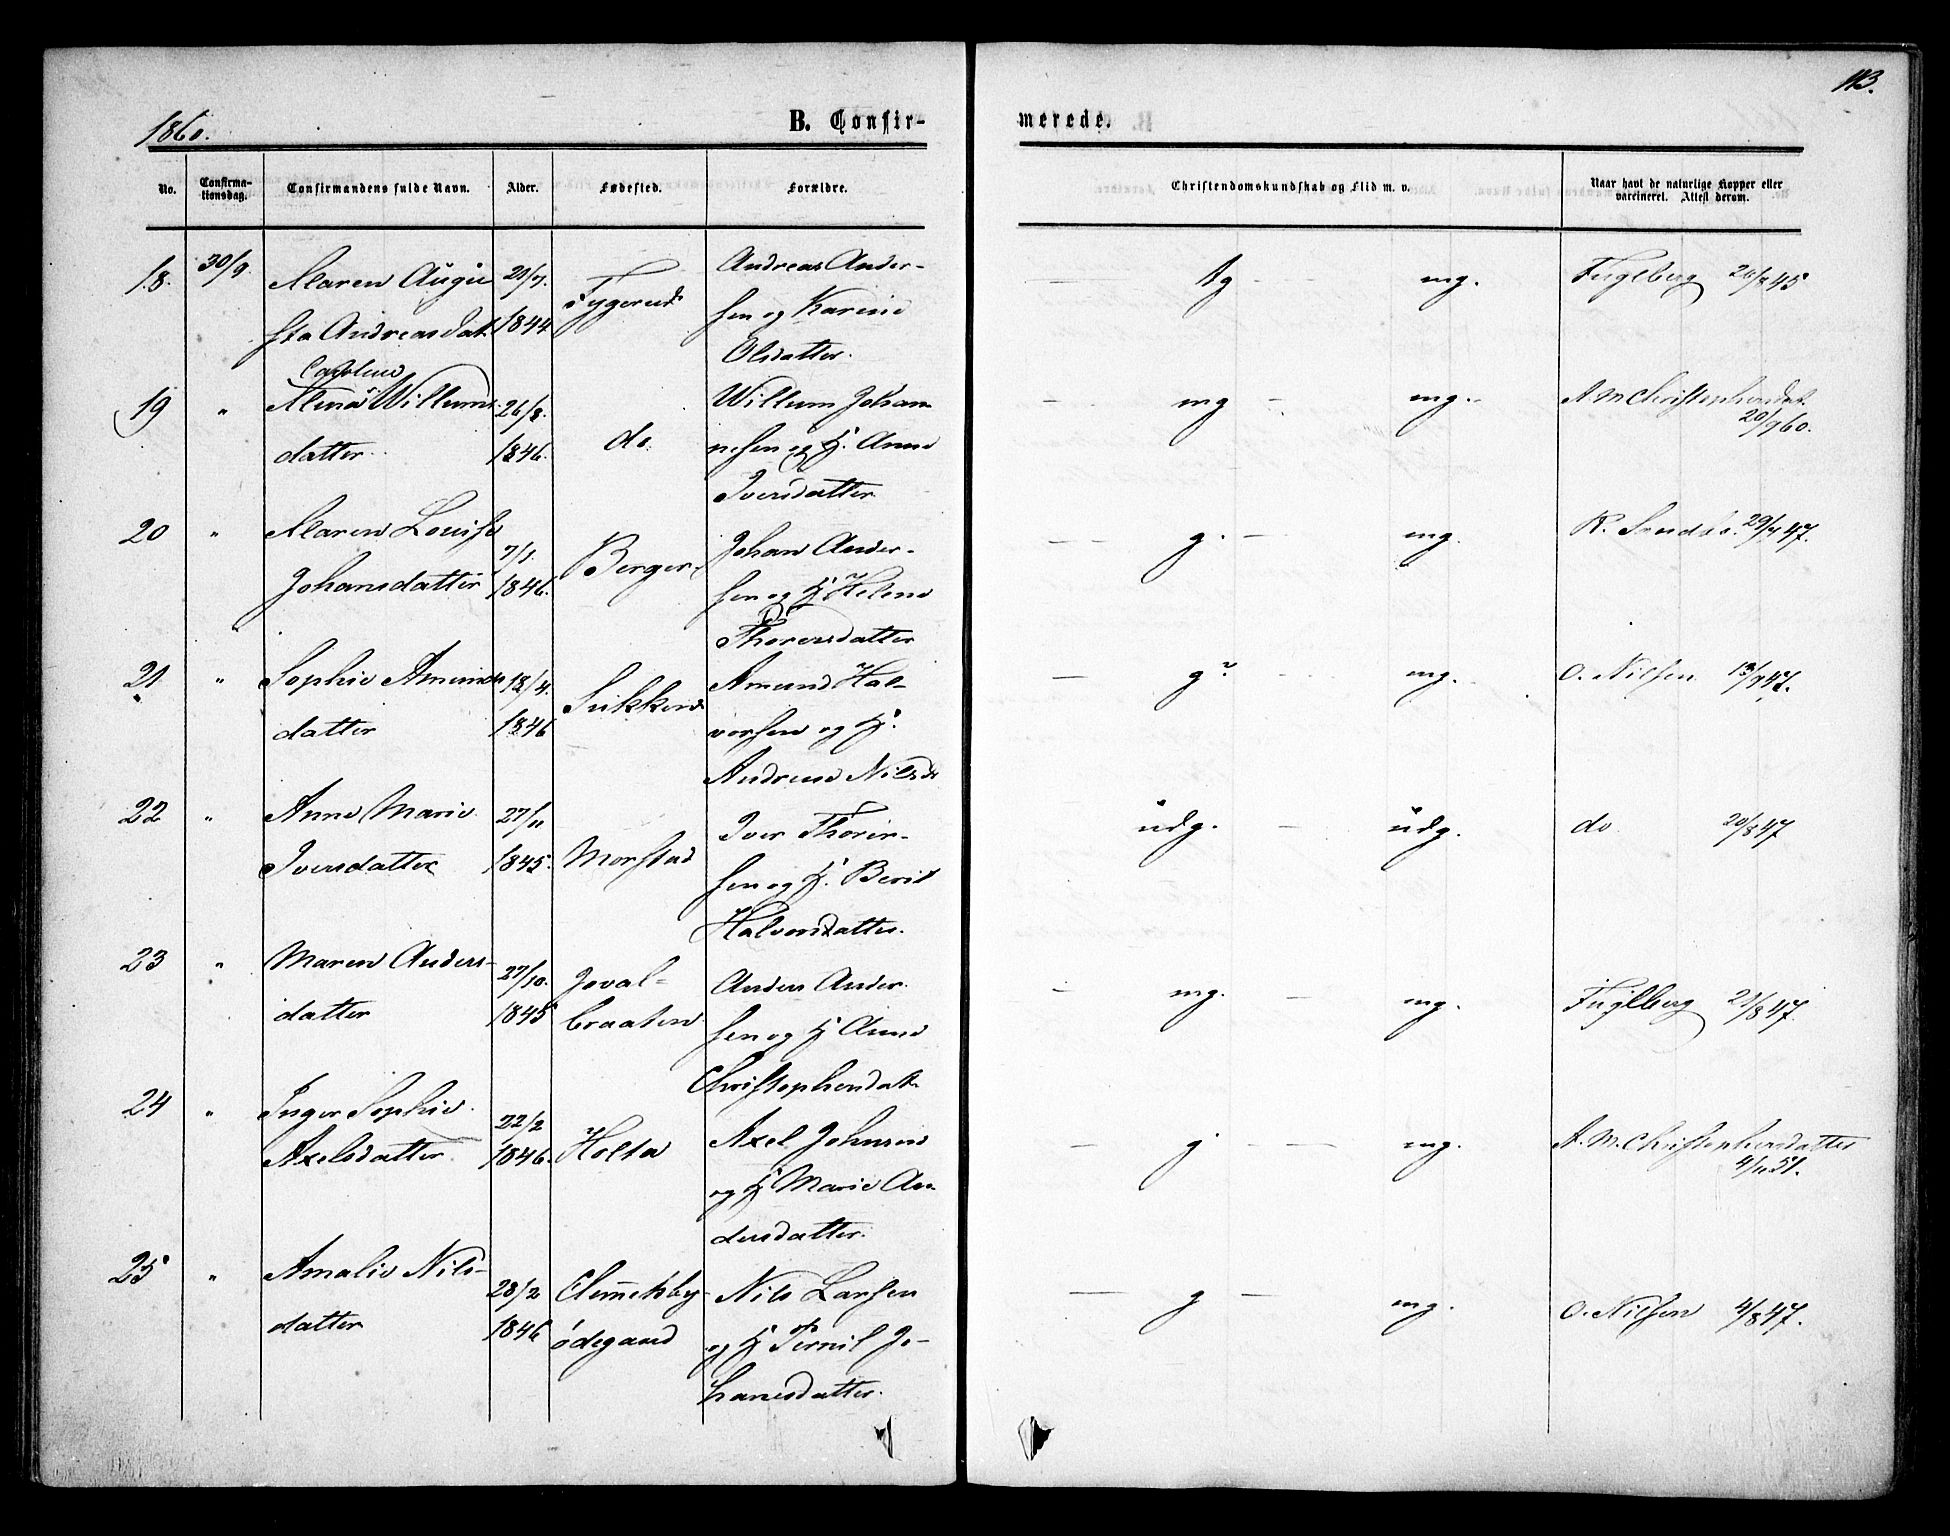 113.
1860.
B. Confir-
merede.
No.
Confirma-
tionsdag.
Confirmandens fulde Navn.
Alder.
Fødested.
Forældre.
Christendomskundskab og Flid m. v.
Naar havt de naturlige Kopper eller
vaccineret. Attest derom.
18. 30/9. Maren Augu
sta Andreasdat.
21/7.
1844
Tygerud
Andreas Ander-
sen og Karine
Olsdatter.
tg - mg.
Fuglberg
19 " Caroline
Willums
datter.
26/8.
1846.
do.
Willum Johan
nesen og H. Anne
Iversdatter
mg - mg.
A M Christophersdat.
20/9 60.
20 " Maren Louise
Johansdatter
7/1.
1846.
Berger
Johan Ander-
sen og H. Helene
Thorersdatter
g. - mg.
29/7 47.
21 " Sophie Amunds
datter
18/4.
1846
Amund Hal-
vorsen og H.
Andrine Nilsd
g? mg.
O. Nilsen 13/8 47.
22 " Anne Marie
Iversdatter
27/11
1845.
Morstad
Iver Thorer-
sen og H. Berit
Halvorsdatter.
udg. - udg.
do 20/8 47
23 " Maren Anders-
datter
27/10.
1845
Joval-
braaten
Anders Ander
sen og H Anne
Christophersdat
- mg. - mg.
Fuglberg 21/8 47.
24 " Inger Sophie
Axelsdatter.
22/2
1846.
Holta
Axel Johnsen
og H Marie An
dersdatter.
- g - mg.
A. M. Christophersdatter
4/11 51.
25 " Amalie Nils-
datter
28/2
1846
Clemmetsby-
ødegaard
Nils Larsen
og H Pernil Jo-
hanesdatter.
- g - mg.
O. Nilsen 4/8 47.